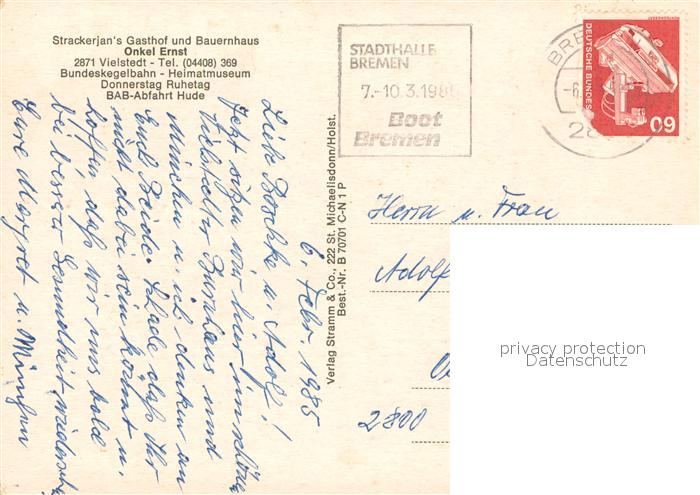 Strackerjan's Gasthof und Bauernhaus
Onkel Ernst
2871 Vielstedt - Tel. (04408) 369
Bundeskegelbahn - Heimatmuseum
Donnerstag Ruhetag
BAB-Abfahrt Hude
STADTHALLE
BREMEN
7.-10.3.198
Boot
Bremen
BRE
-6.
28
DEUTSCHE BUNDES
60
6. Febr. 1985
Liebe u. Adolf!
Jetzt sitzen wir hier im schönen
Vielstedter Burnhaus und
München u. ich denken an
Euch Beide. Schade daß Ihr
nicht dabei sein könnt u.
hoffen daß wir uns bald
bei besserer Gesundheit wiedersehn
Eure Margret u.
Verlag Stramm & Co., 222 St. Michaelisdonn/Holst.
Best.-Nr. B 70701 C-N 1 P
Herrn u. Frau
Adolf
2800
privacy protection
Datenschutz